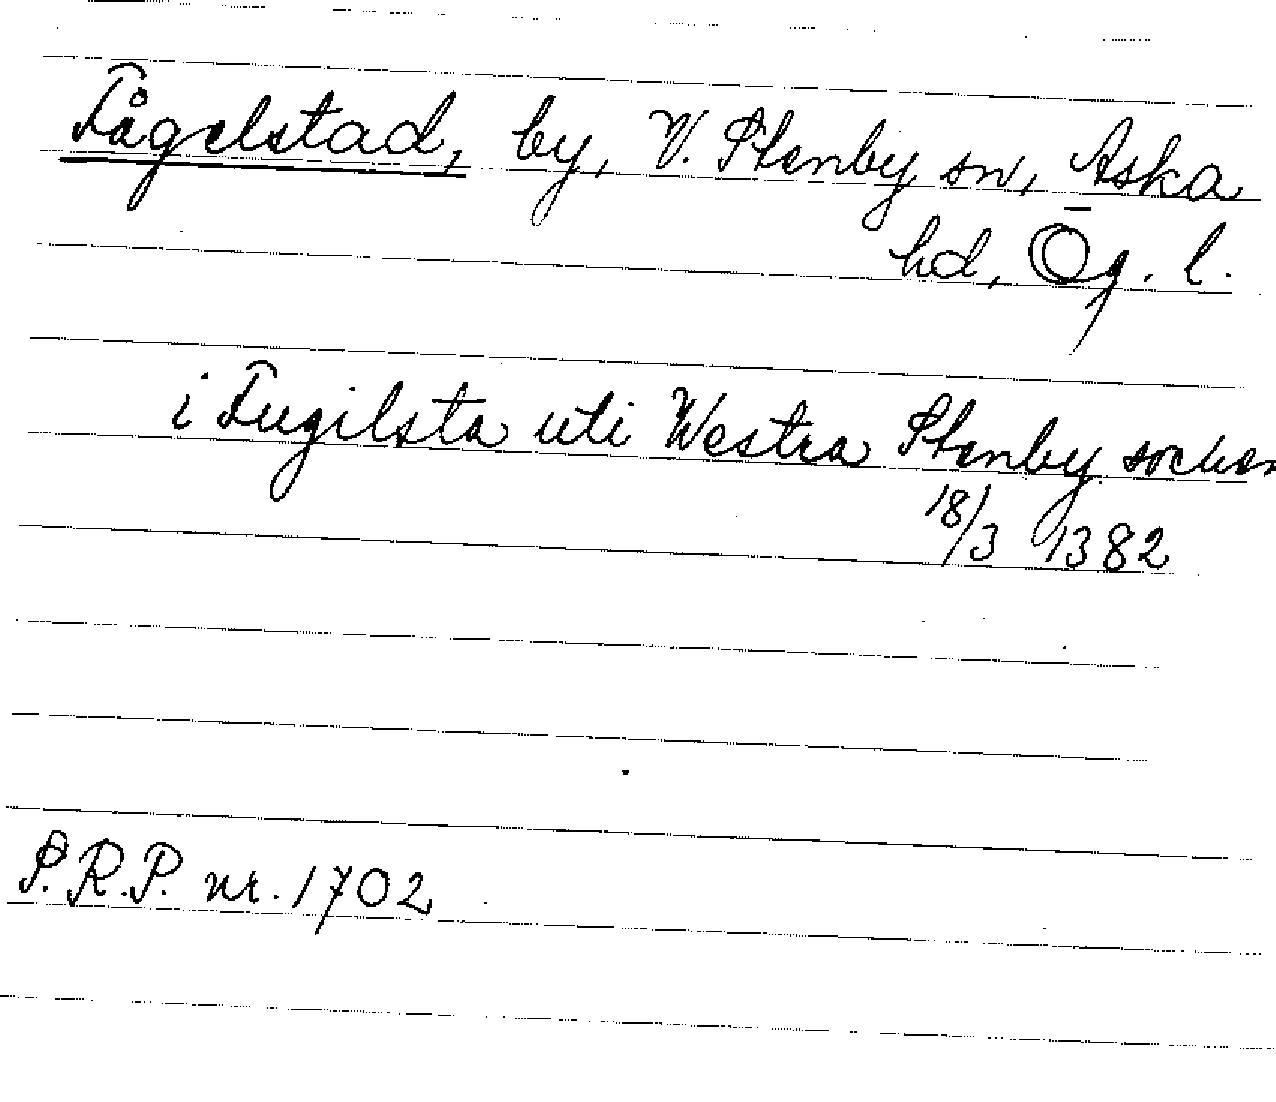 Fågelstad, by, V. Stenby sn, Aska
hd, Ög. l.
i Fugilsta uti Westra Stenby socken
18/3 1382
P.R.P. nr. 1702